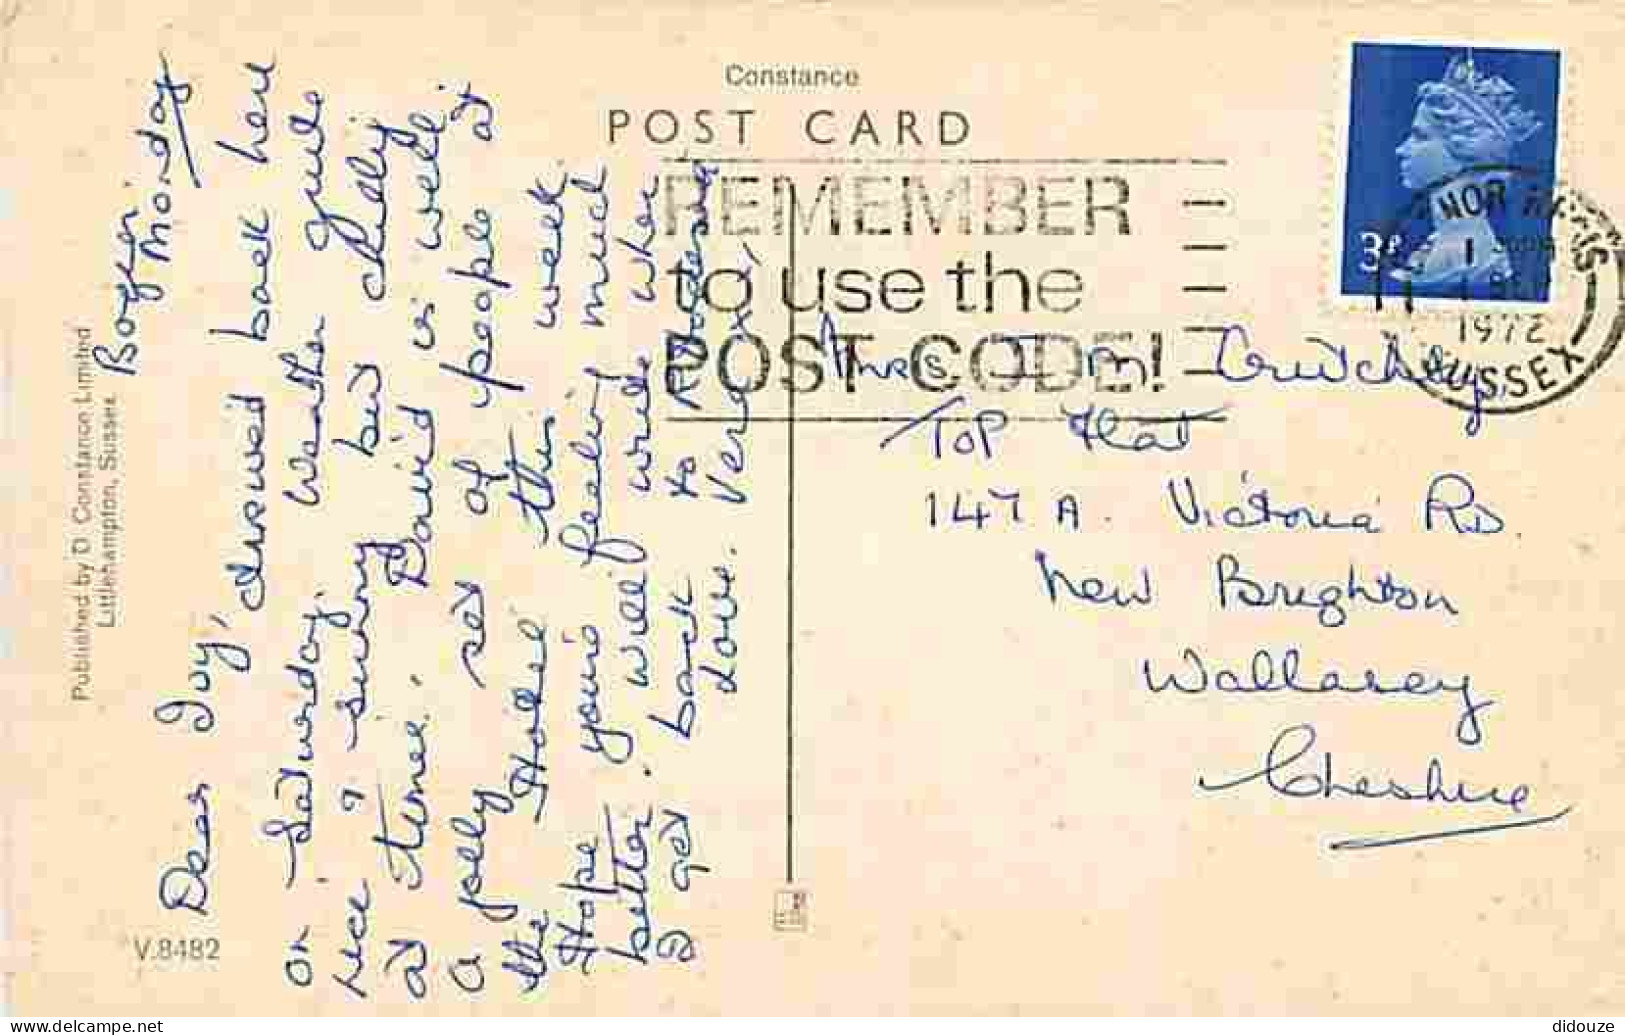 Constance
POST CARD
REMEMBER
to use the
POST CODE!
NOR REGIS
1972
SUSSEX
3
Published by D Constance Limited
Littlehampton, Sussex
V.8482
Bognor
Monday
Dear Ivy,
Arrived back here
on Saturday. Weather quite
nice & sunny but chilly
at times. David is well
a jolly set of people at
the Hotel this week
Hope you're feeling much
better. will write when
I get back to
Love. Vera x
Mrs I M Crutchley,
Top Flat
147A. Victoria Rd
New Brighton
Wallasey
Cheshire
didouze